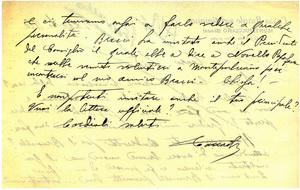 e ci troviamo a farlo vedere a qualche
personalità. Bracci ha invitato anche il Presidente
del Consiglio il quale ebbe a dire a Novello Papafava
che sarebbe venuto volentieri a Montepulciano per
incontrarsi col suo amico Bracci.
E non potresti invitare anche il tuo principale?
Vuoi la lettera ufficiale?
Cordiali saluti